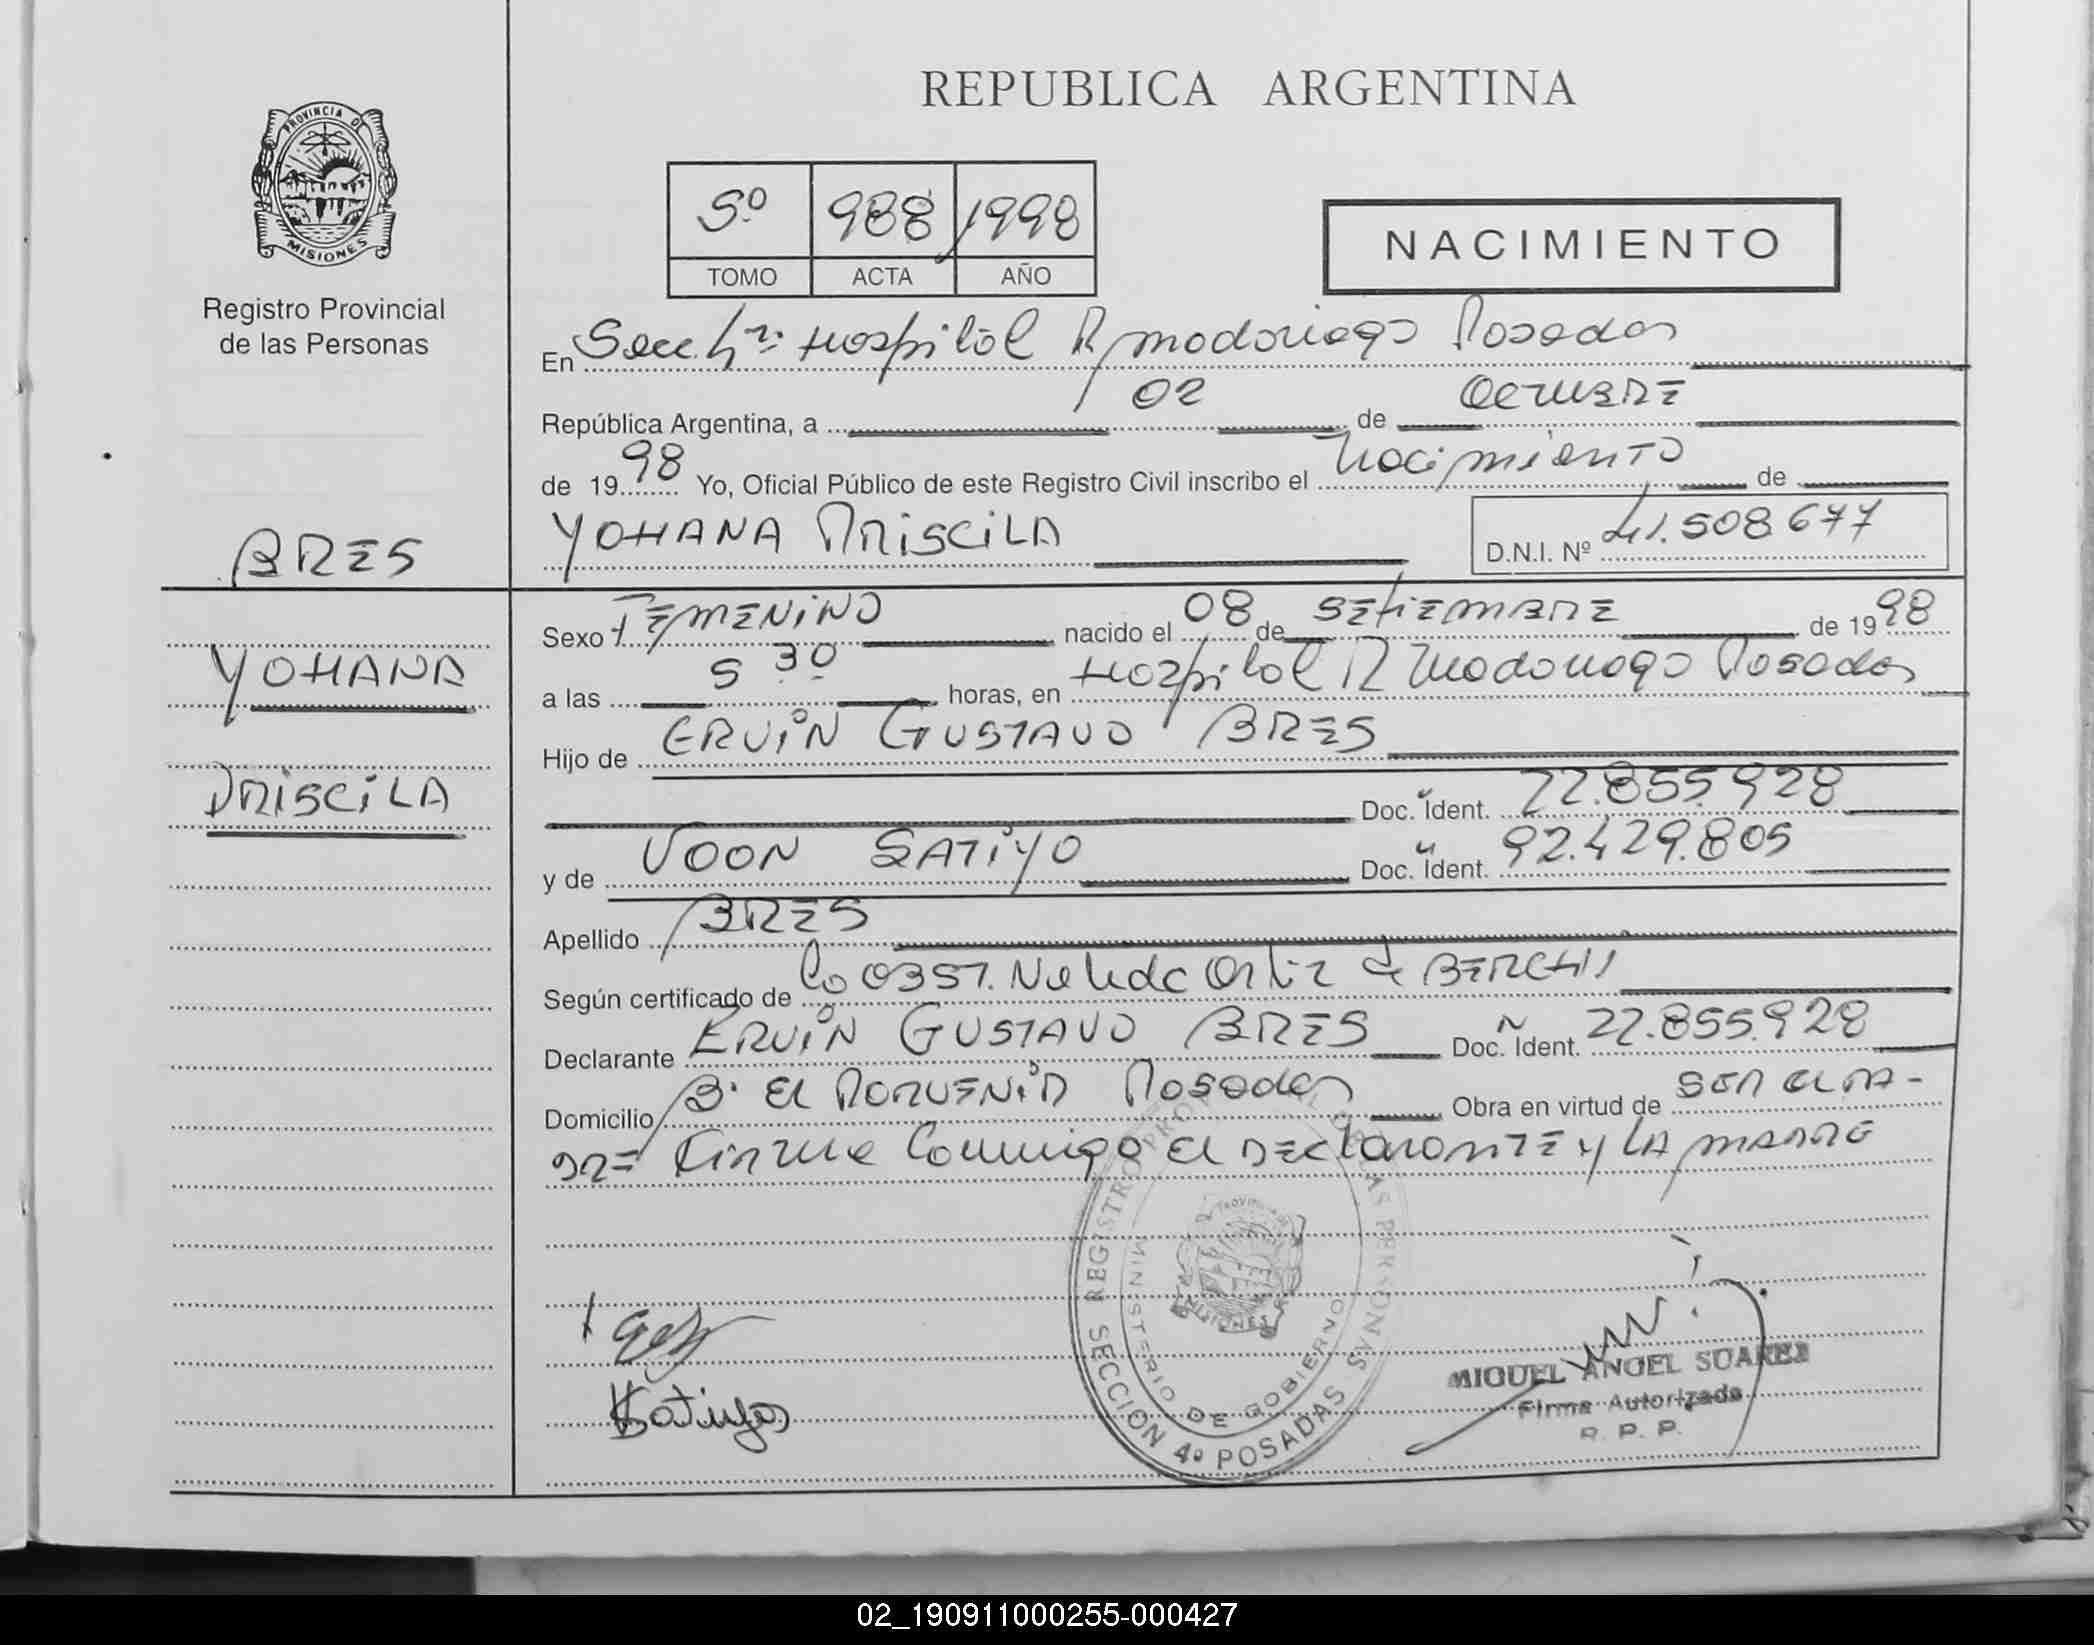 REPUBLICA ARGENTINA
PROVINCIA DE
MISIONES
Registro Provincial
de las Personas
5º 988 1998
TOMO ACTA AÑO
NACIMIENTO
En Secc. 4ª Hospital R. Madariaga Posadas
República Argentina, a 02 de OCTUBRE
de 1998 Yo, Oficial Público de este Registro Civil inscribo el Nacimiento de
YOHANA PRISCILA D.N.I. Nº 41.508.677
BRES
YOHANA
PRISCILA
Sexo FEMENINO nacido el 08 de SETIEMBRE de 1998
a las 5 30 horas, en Hospital R Madariaga Posadas
Hijo de ERVIN GUSTAVO BRES
Doc. Ident. 22.855.928
y de VOON SATIYO Doc. Ident. 92.429.805
Apellido BRES
Según certificado de Obst. Nelida Ortiz de BERCHII
Declarante ERVIN GUSTAVO BRES Doc. Ident. 22.855.928
Domicilio B. El PORVENIR Posadas Obra en virtud de SER EL PA-
DRE Firme Conmigo El DEClaranTE y LA MADRE
REGISTRO PROVINCIAL DE LAS PERSONAS
MINISTERIO DE GOBIERNO
PROVINCIA DE
MISIONES
SECCION 4ª POSADAS
MIGUEL ANGEL SUAREZ
Firma Autorizada
R. P. P.
02_190911000255-000427